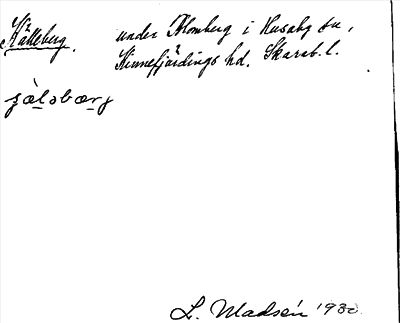 Källeberg. under Blomberg i Husaby sn,
Kinnefjärdings hd. Skarab. l.
L. Madsén 1930